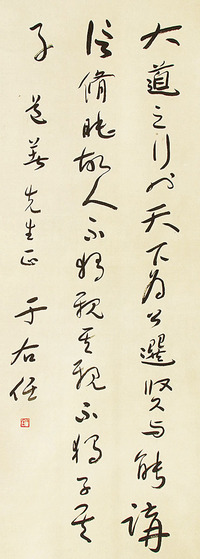 大道之行也天下為公選賢与能講
信脩睦故人不獨親其親不獨子其
子 先生正 于右任